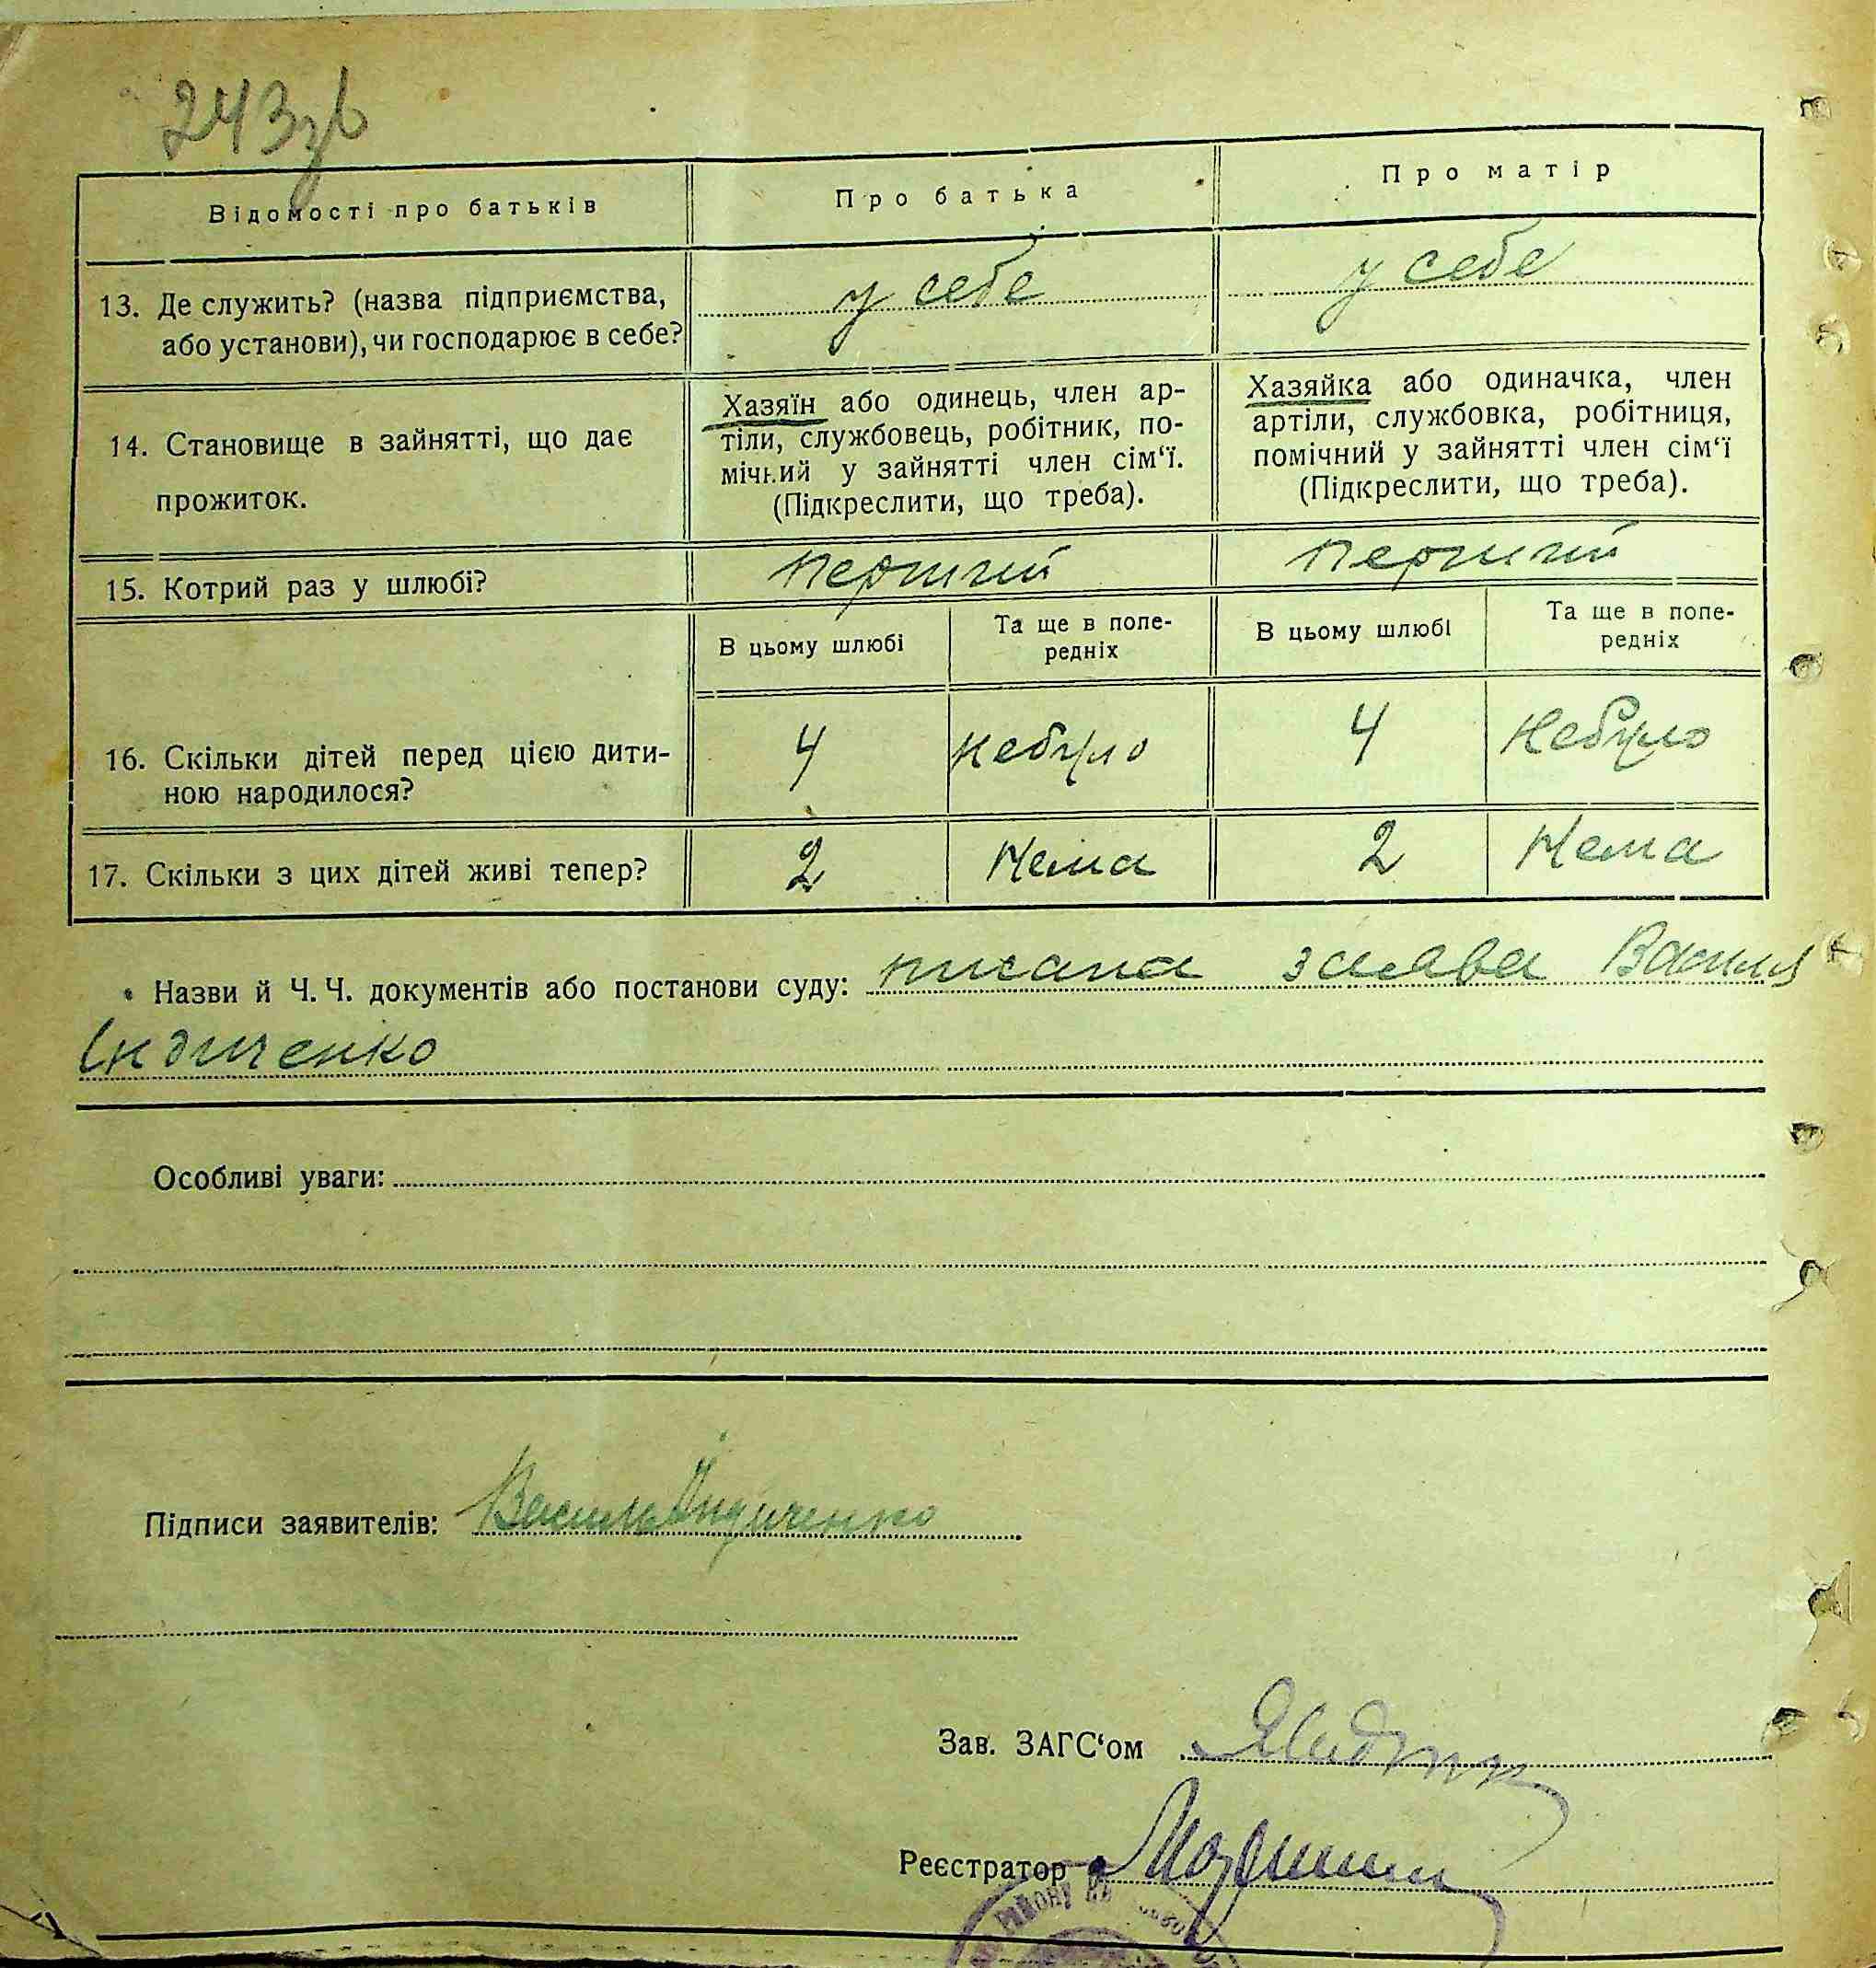 243зв
Відомості про батьків
Про батька
Про матір
13. Де служить? (назва підприємства,
або установи), чи господарює в себе?
у себе
у себе
14. Становище в зайнятті, що дає
прожиток.
Хазяїн або одинець, член ар-
тіли, службовець, робітник, по-
мічний у зайнятті член сім‘ї.
(Підкреслити, що треба).
Хазяйка або одиначка, член
артіли, службовка, робітниця,
помічний у зайнятті член сім‘ї
(Підкреслити, що треба).
15. Котрий раз у шлюбі?
перший
перший
В цьому шлюбі
Та ще в попе-
редніх
В цьому шлюбі
Та ще в попе-
редніх
16. Скільки дітей перед цією дити-
ною народилося?
4
небуло
4
небуло
17. Скільки з цих дітей живі тепер?
2
Нема
2
Нема
Назви й Ч. Ч. документів або постанови суду: писана заява Василя
Індиченко
Особливі уваги:
Підписи заявителів: Василь Індиченко
Зав. ЗАГС‘ом
Реєстратор